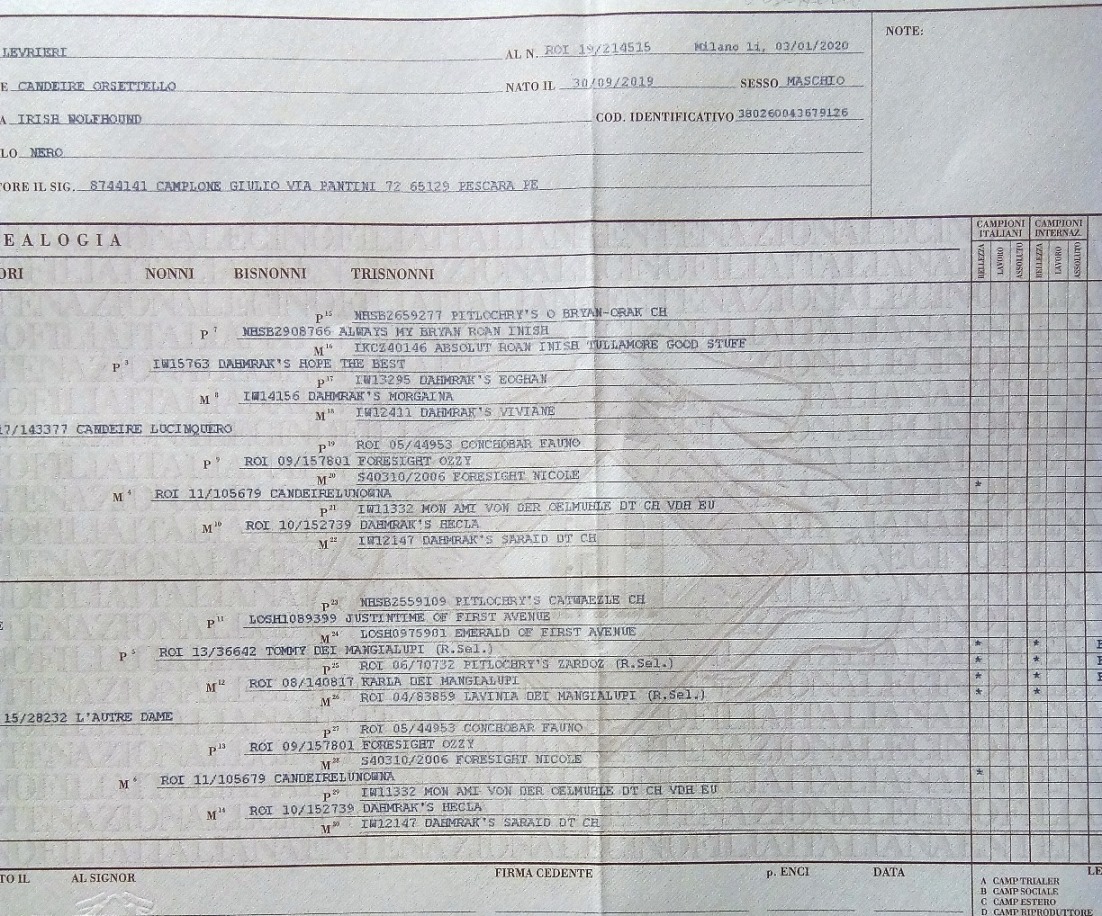 LEVRIERI AL N. ROI 19/214515 Milano li, 03/01/2020 NOTE:
E CANDEIRE ORSETTELLO NATO IL 30/09/2019 SESSO MASCHIO
A IRISH WOLFHOUND COD. IDENTIFICATIVO 380260043679126
LO NERO
TORE IL SIG. 8744141 CAMPLONE GIULIO VIA PANTINI 72 65129 PESCARA PE
EALOGIA
CAMPIONI ITALIANI CAMPIONI INTERNAZ.
BELLEZZA LAVORO ASSOLUTO BELLEZZA LAVORO ASSOLUTO
ORI NONNI BISNONNI TRISNONNI
P 15 NHSB2659277 PITLOCHRY'S O BRYAN-ORAK CH
P 7 NHSB2908766 ALWAYS MY BRYAN ROAN INISH
M 16 IKCZ40146 ABSOLUT ROAN INISH TULLAMORE GOOD STUFF
P 3 IW15763 DAHMRAK'S HOPE THE BEST
P 17 IW13295 DAHMRAK'S EOGHAN
M 8 IW14156 DAHMRAK'S MORGAINA
M 18 IW12411 DAHMRAK'S VIVIANE
17/143377 CANDEIRE LUCINQUERO
P 19 ROI 05/44953 CONCHOBAR FAUNO
P 9 ROI 09/157801 FORESIGHT OZZY
M 20 S40310/2006 FORESIGHT NICOLE
M 4 ROI 11/105679 CANDEIRELUNOWNA *
P 21 IW11332 MON AMI VON DER OELMUHLE DT CH VDH EU
M 10 ROI 10/152739 DAHMRAK'S HECLA
M 22 IW12147 DAHMRAK'S SARAID DT CH
P 23 NHSB2559109 PITLOCHRY'S CATWAEZLE CH
P 11 LOSH1089399 JUSTINTIME OF FIRST AVENUE
M 24 LOSH0975901 EMERALD OF FIRST AVENUE
P 5 ROI 13/36642 TOMMY DEI MANGIALUPI (R.Sel.) * *
P 25 ROI 06/70732 PITLOCHRY'S ZARDOZ (R.Sel.) * *
M 12 ROI 08/140817 KARLA DEI MANGIALUPI * *
M 26 ROI 04/83859 LAVINIA DEI MANGIALUPI (R.Sel.) * *
15/28232 L'AUTRE DAME
P 27 ROI 05/44953 CONCHOBAR FAUNO
P 13 ROI 09/157801 FORESIGHT OZZY
M 28 S40310/2006 FORESIGHT NICOLE
M 6 ROI 11/105679 CANDEIRELUNOWNA *
P 29 IW11332 MON AMI VON DER OELMUHLE DT CH VDH EU
M 14 ROI 10/152739 DAHMRAK'S HECLA
M 30 IW12147 DAHMRAK'S SARAID DT CH
TO IL AL SIGNOR FIRMA CEDENTE p. ENCI DATA LE
A CAMP TRIALER
B CAMP SOCIALE
C CAMP ESTERO
D CAMP RIPRODUTTORE